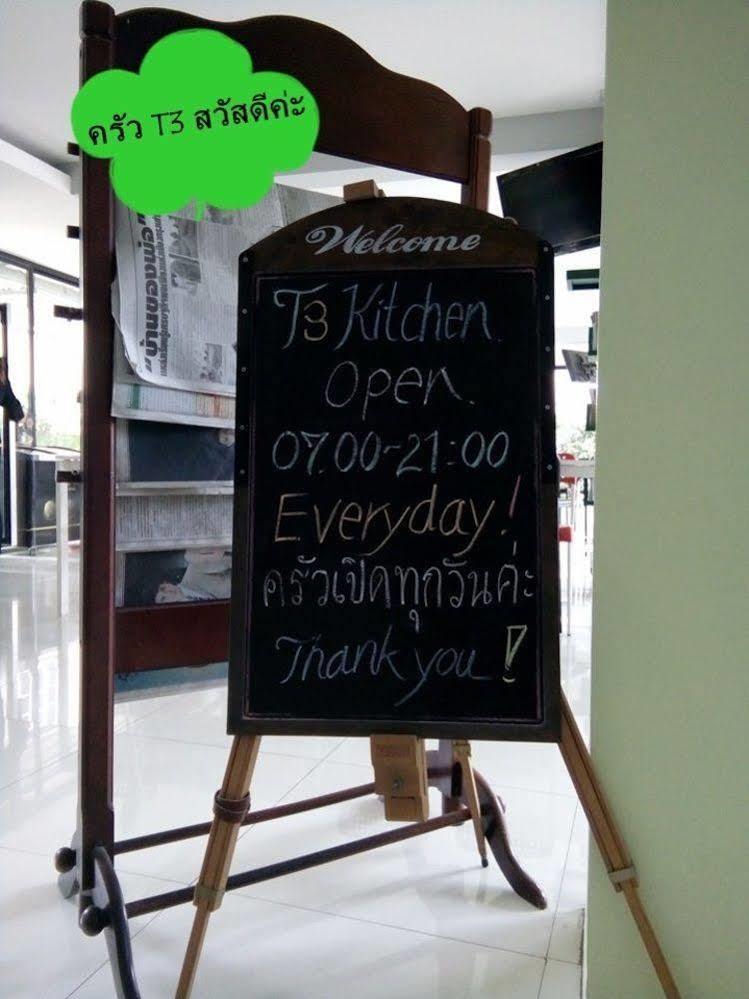 ครัว T3 สวัสดีค่ะ
Welcome
T3 Kitchen.
Open.
07.00-21:00
Everyday!
ครัวเปิดทุกวันค่ะ
Thank you!